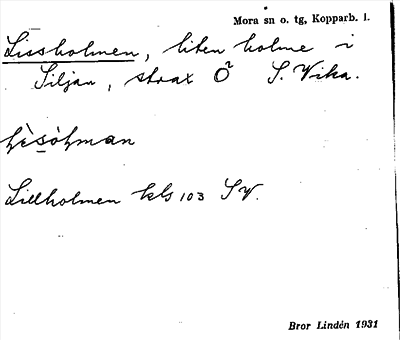 Mora sn o. tg, Kopparb. l.
Lissholmen, liten holme i
Siljan, strax Ö S. Vika.
Lillholmen kls 103 SV.
Bror Lindén 1931